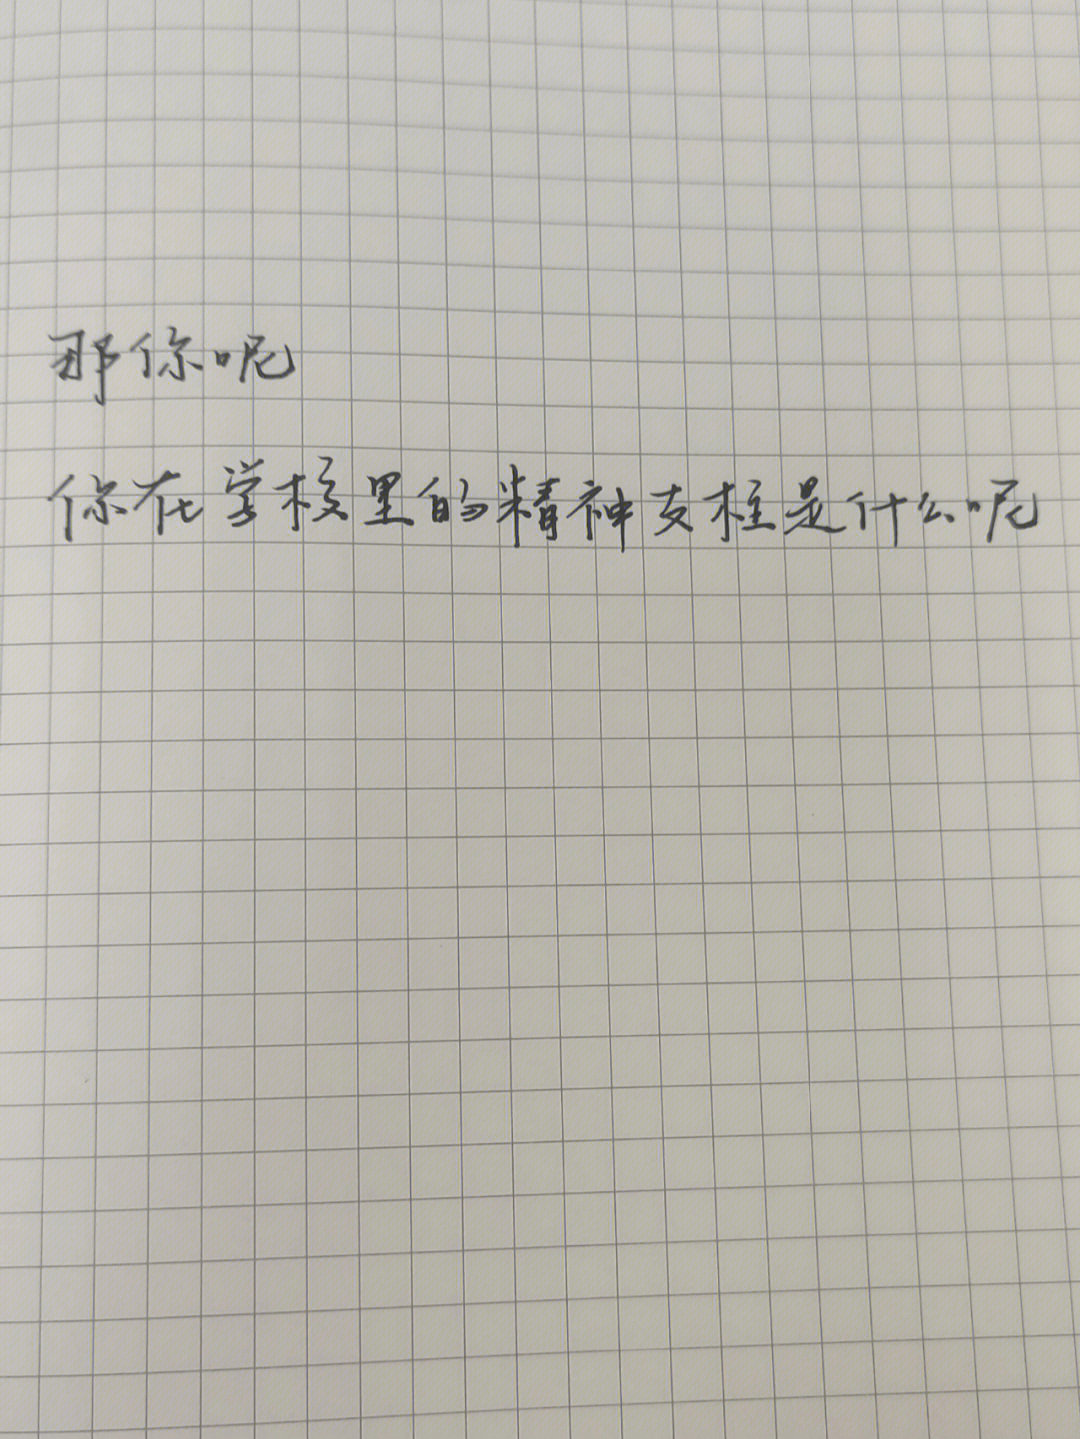 那你呢
你在学校里的精神支柱是什么呢